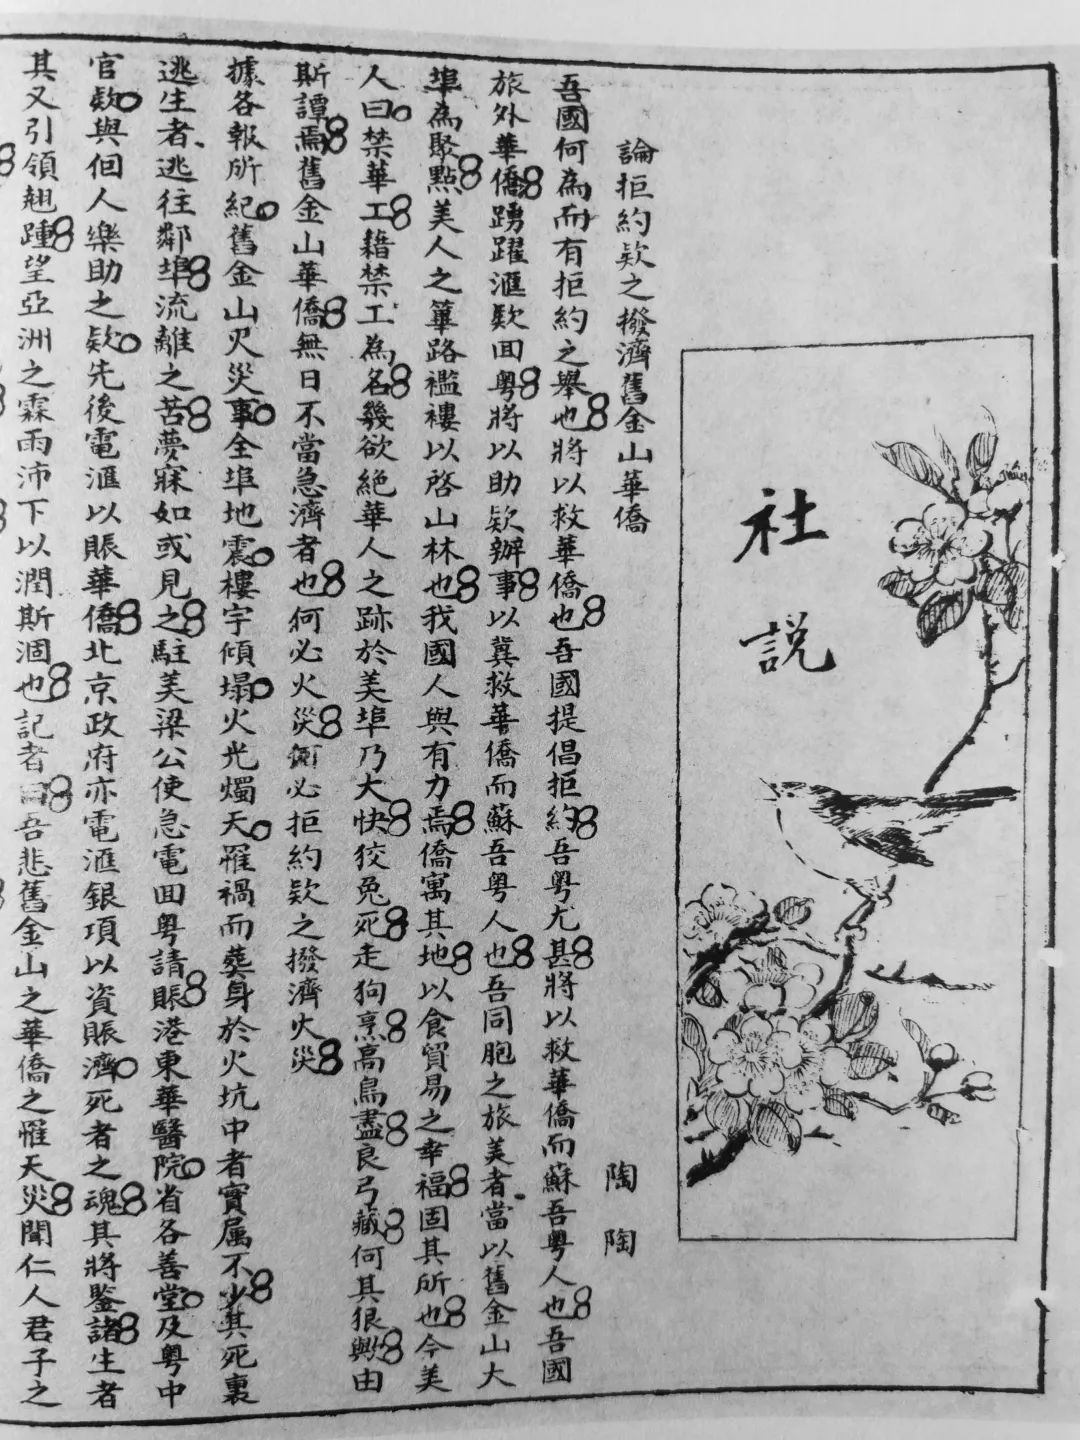 社說
論拒約欵之撥濟舊金山華僑
陶陶
吾國何為而有拒約之舉也將以救華僑也吾國提倡拒約吾粤尤甚將以救華僑而蘇吾粤人也吾國
旅外華僑踴躍滙欵囬粤將以助欵辦事以冀救華僑而蘇吾粤人也吾同胞之旅美者當以舊金山大
埠為聚點美人之篳路襤褸以啓山林也我國人與有力焉僑寓其地以食貿易之幸福固其所也今美
人曰禁華工藉禁工為名幾欲絶華人之跡於美埠乃大快狡兔死走狗烹高鳥盡良弓藏何其狠歟由
斯譚焉舊金山華僑無日不當急濟者也何必火災何必拒約欵之撥濟火災
據各報所紀舊金山火災事全埠地震樓宇傾塌火光燭天罹禍而葬身於火坑中者實属不少其死裏
逃生者逃往鄰埠流離之苦夢寐如或見之駐美梁公使急電囬粤請賑港東華醫院省各善堂及粤中
官欵與個人樂助之欵先後電滙以賬華僑北京政府亦電滙銀項以資賑濟死者之魂其將鑒諸生者
其又引領翹踵望亞洲之霖雨沛下以潤斯涸也記者曰吾悲舊金山之華僑之罹天災聞仁人君子之